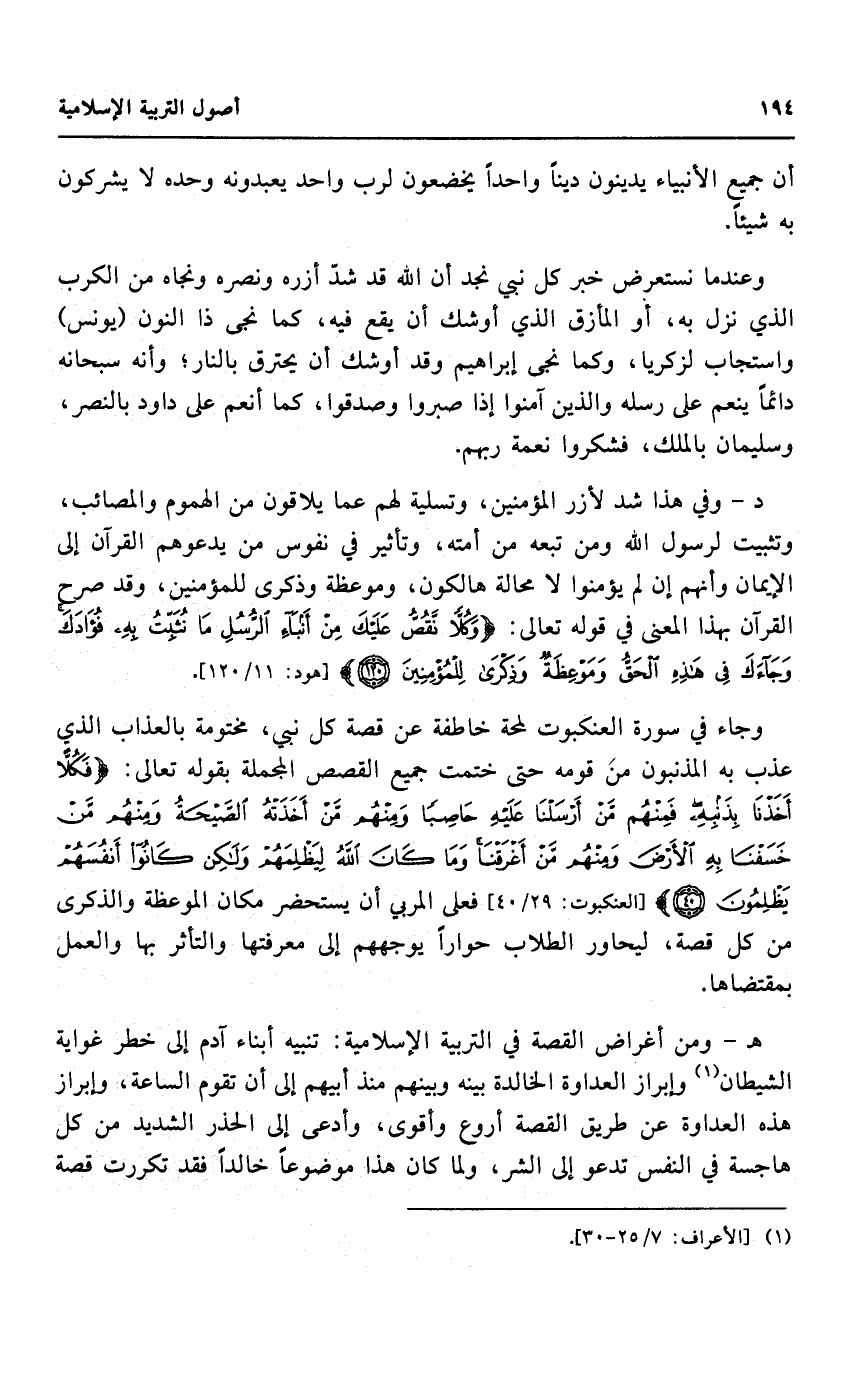 ١٩٤ أصول التربية الإسلامية
أن جميع الأنبياء يدينون ديناً واحداً يخضعون لرب واحد يعبدونه وحده لا يشركون
به شيئاً.
وعندما نستعرض خبر كل نبي نجد أن الله قد شدّ أزره ونصره ونجاه من الكرب
الذي نزل به، أو المأزق الذي أوشك أن يقع فيه، كما نجى ذا النون (يونس)
واستجاب لزكريا، وكما نجى إبراهيم وقد أوشك أن يحترق بالنار؛ وأنه سبحانه
دائماً ينعم على رسله والذين آمنوا إذا صبروا وصدقوا، كما أنعم على داود بالنصر،
وسليمان بالملك، فشكروا نعمة ربهم.
د - وفي هذا شد لأزر المؤمنين، وتسلية لهم عما يلاقون من الهموم والمصائب،
وتثبيت لرسول الله ومن تبعه من أمته، وتأثير في نفوس من يدعوهم القرآن إلى
الإيمان وأنهم إن لم يؤمنوا لا محالة هالكون، وموعظة وذكرى للمؤمنين، وقد صرح
القرآن بهذا المعنى في قوله تعالى: ﴿وَكُلًّا نَّقُصُّ عَلَيْكَ مِنْ أَنۢبَآءِ ٱلرُّسُلِ مَا نُثَبِّتُ بِهِۦ فُؤَادَكَۚ
وَجَآءَكَ فِى هَٰذِهِ ٱلْحَقُّ وَمَوْعِظَةٌ وَذِكْرَىٰ لِلْمُؤْمِنِينَ ١٢٠﴾ [هود: ١١/ ١٢٠].
وجاء في سورة العنكبوت لمحة خاطفة عن قصة كل نبي، مختومة بالعذاب الذي
عذب به المذنبون من قومه حتى ختمت جميع القصص المجملة بقوله تعالى: ﴿فَكُلًّا
أَخَذْنَا بِذَنۢبِهِۦۖ فَمِنْهُم مَّنْ أَرْسَلْنَا عَلَيْهِ حَاصِبًا وَمِنْهُم مَّنْ أَخَذَتْهُ ٱلصَّيْحَةُ وَمِنْهُم مَّنْ
خَسَفْنَا بِهِ ٱلْأَرْضَ وَمِنْهُم مَّنْ أَغْرَقْنَاۚ وَمَا كَانَ ٱللَّهُ لِيَظْلِمَهُمْ وَلَٰكِن كَانُوٓا۟ أَنفُسَهُمْ
يَظْلِمُونَ ٤٠﴾ [العنكبوت: ٢٩/ ٤٠] فعلى المربي أن يستحضر مكان الموعظة والذكرى
من كل قصة، ليحاور الطلاب حواراً يوجههم إلى معرفتها والتأثر بها والعمل
بمقتضاها.
هـ - ومن أغراض القصة في التربية الإسلامية: تنبيه أبناء آدم إلى خطر غواية
الشيطان(١) وإبراز العداوة الخالدة بينه وبينهم منذ أبيهم إلى أن تقوم الساعة، وإبراز
هذه العداوة عن طريق القصة أروع وأقوى، وأدعى إلى الحذر الشديد من كل
هاجسة في النفس تدعو إلى الشر، ولما كان هذا موضوعاً خالداً فقد تكررت قصة
(١) [الأعراف: ٧/ ٢٥-٣٠].